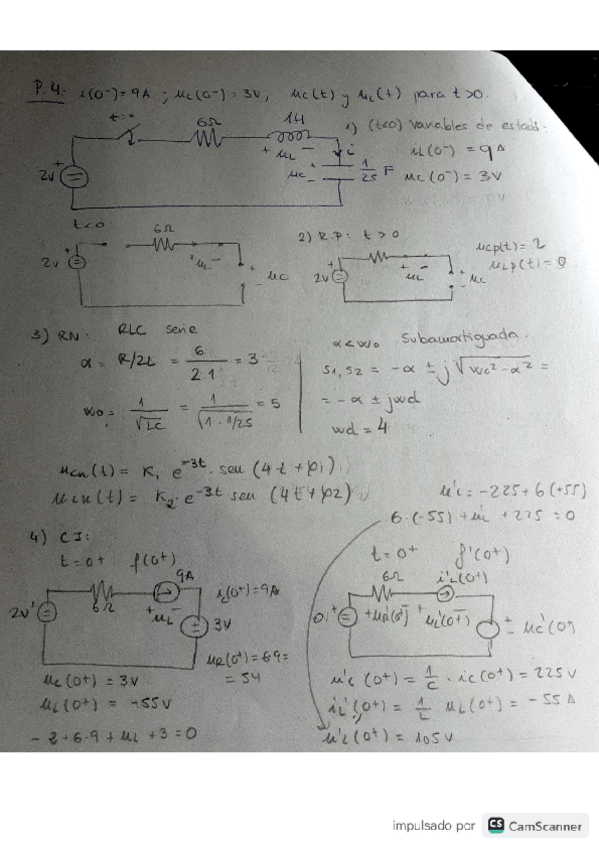 P.4. i(0⁻) = 9A ; uc(0⁻) = 3V ; uc(t) y uL(t) para t>0.
t=0
6Ω
1H
+ uL -
i
2V
+
uc
-
1/25 F
1) (t<0) Variables de estado:
iL(0⁻) = 9A
uc(0⁻) = 3V
t<0:
6Ω
2V
+ uL -
+
- uc
2) R.P: t>0
2V
+ uL -
+
- uc
ucp(t) = 2
uLp(t) = 0
3) RN: RLC serie
α = R/2L = 6/2·1 = 3
ω₀ = 1/√LC = 1/√1·1/25 = 5
α<ω₀ Subamortiguada.
s1, s2 = -α ± j√ω₀² - α² =
= -α ± jωd
ωd = 4
ucn(t) = K₁ e^-3t · sen (4t + φ1)
uLn(t) = K₂ · e^-3t sen (4t + φ2)
u'L = -225 + 6(+55)
6·(-55) + u'L + 225 = 0
4) CI:
t = 0+ f(0+)
9A
2V
6Ω
+ uL -
3V
iL(0+) = 9A
uR(0+) = 6·9 =
= 54
uc(0+) = 3V
uL(0+) = -55V
-2 + 6·9 + uL + 3 = 0
t = 0+ f'(0+)
6Ω
i'L(0+)
+ u'L(0+) -
u'c(0+) = 1/C · ic(0+) = 225V
iL'(0+) = 1/L uL(0+) = -55A
u'L(0+) = 105V
impulsado por CS CamScanner